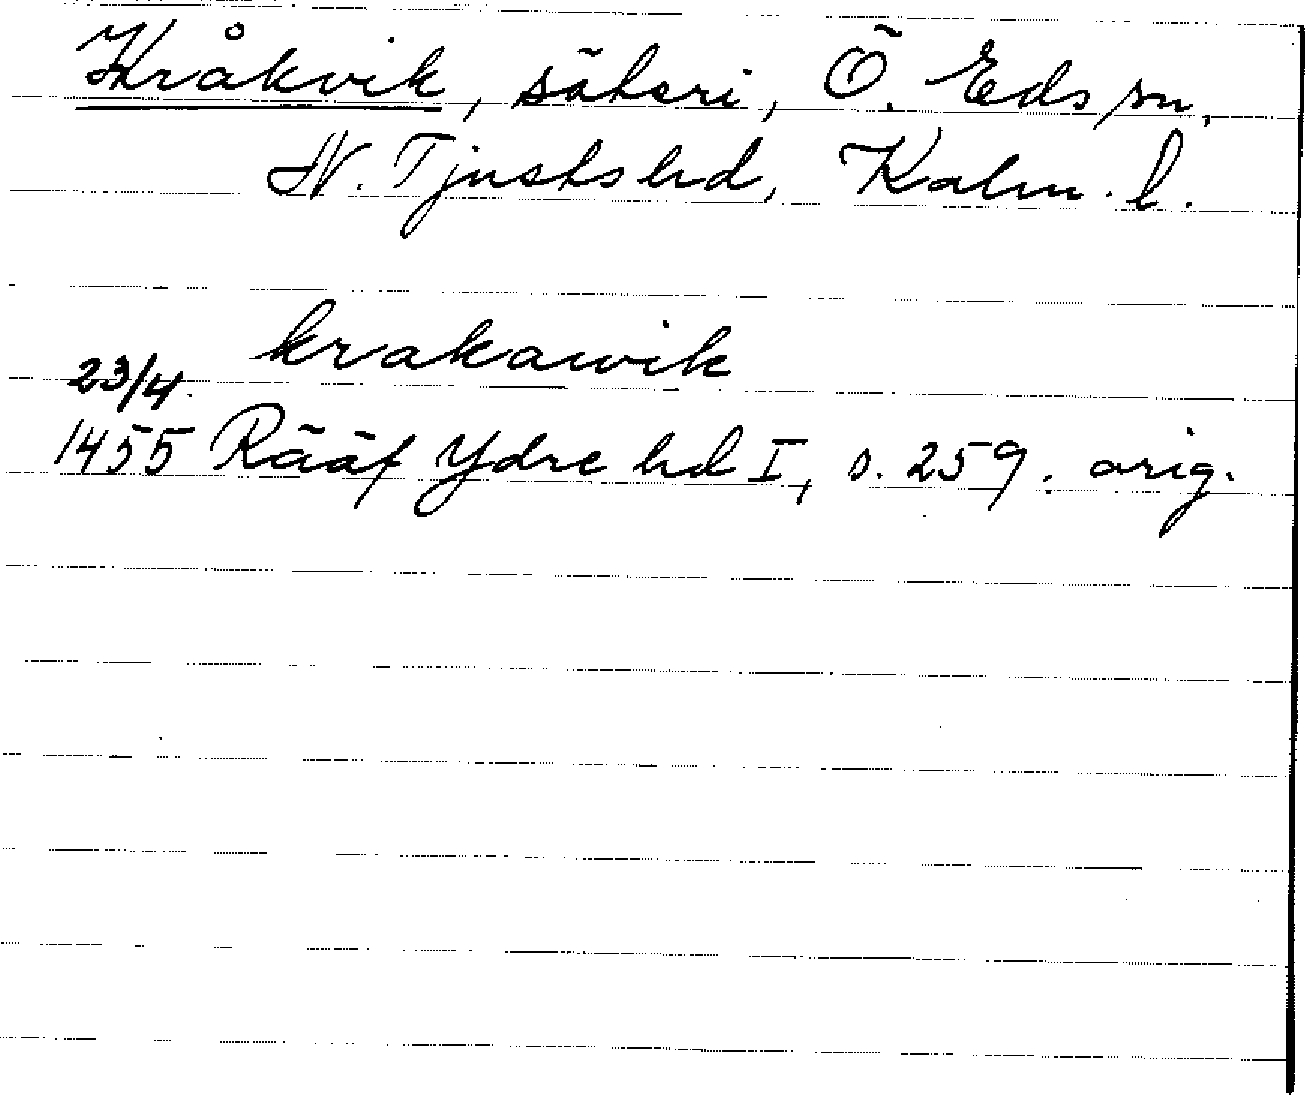 Kråkvik, säteri, Ö. Eds sn,
N. Tjusts hd, Kalm. l.
krakawik
23/4
1455 Rääf Ydre hd I, s. 259. orig.